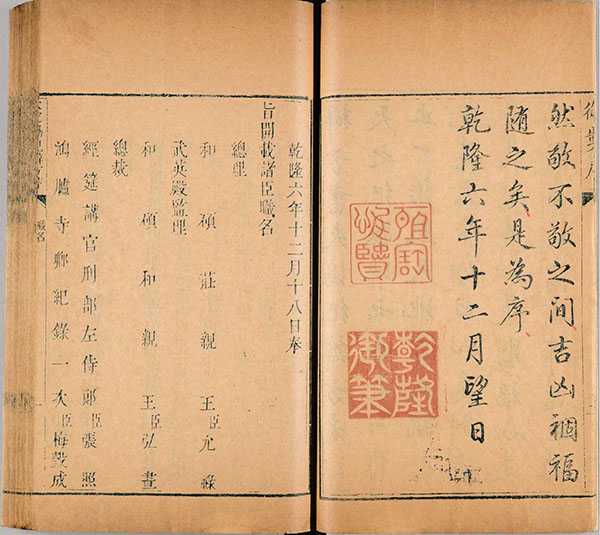 御製序
然敬不敬之間吉凶禍福
随之矣是為序
乾隆六年十二月望日
所寶惟賢
乾隆御筆
乾隆六年十二月十八日奉
旨開載諸臣職名
總理
和碩莊親王臣允祿
武英殿監理
和碩和親王臣弘晝
總裁
經筵講官刑部左侍郎臣張照
鴻臚寺卿紀錄一次臣梅瑴成
職名